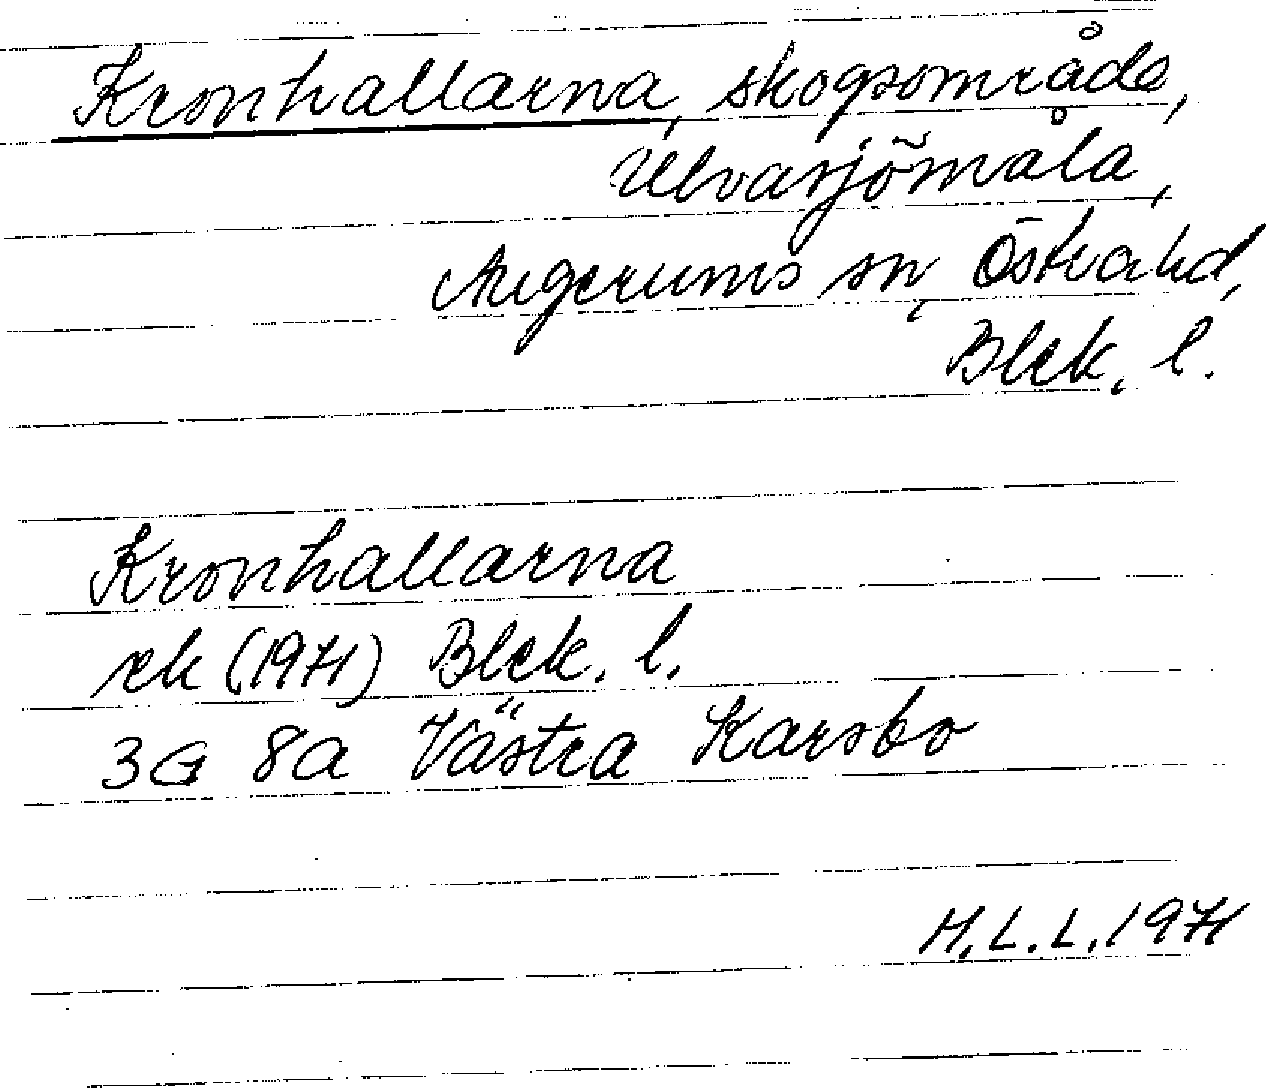 Kronhallarna, skogsområde,
Ulvasjömåla,
Augerums sn, Östra hd,
Blek. l.
Kronhallarna
ek (1971) Blek. l.
3G 8a Västra Karsbo
H.L.L. 1971